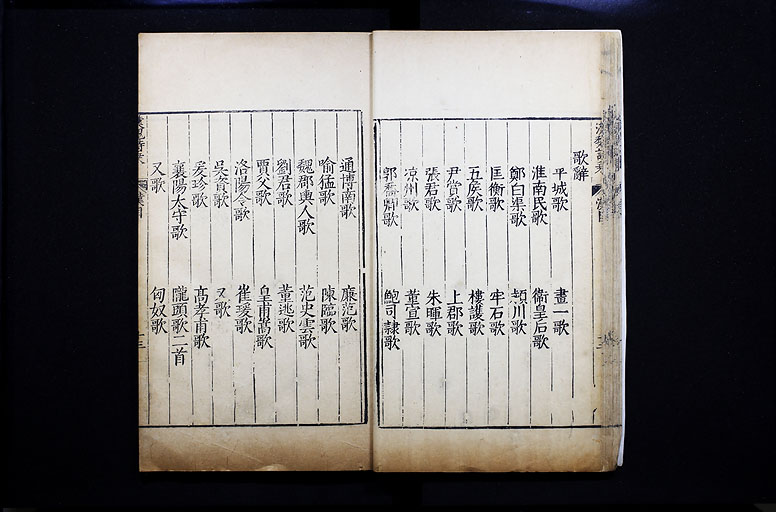 歌辭
平城歌 畫一歌
淮南民歌 衞皇后歌
鄭白渠歌 潁川歌
匡衡歌 牢石歌
五矦歌 樓護歌
尹賞歌 上郡歌
張君歌 朱暉歌
凉州歌 董宣歌
郭喬卿歌 鮑司隸歌
通博南歌 廉范歌
喻猛歌 陳臨歌
魏郡輿人歌 范史雲歌
劉君歌 董逃歌
賈父歌 皇甫嵩歌
洛陽令歌 崔瑗歌
吳資歌 又歌
爰珍歌 髙孝甫歌
襄陽太守歌 隴頭歌二首
又歌 匈奴歌